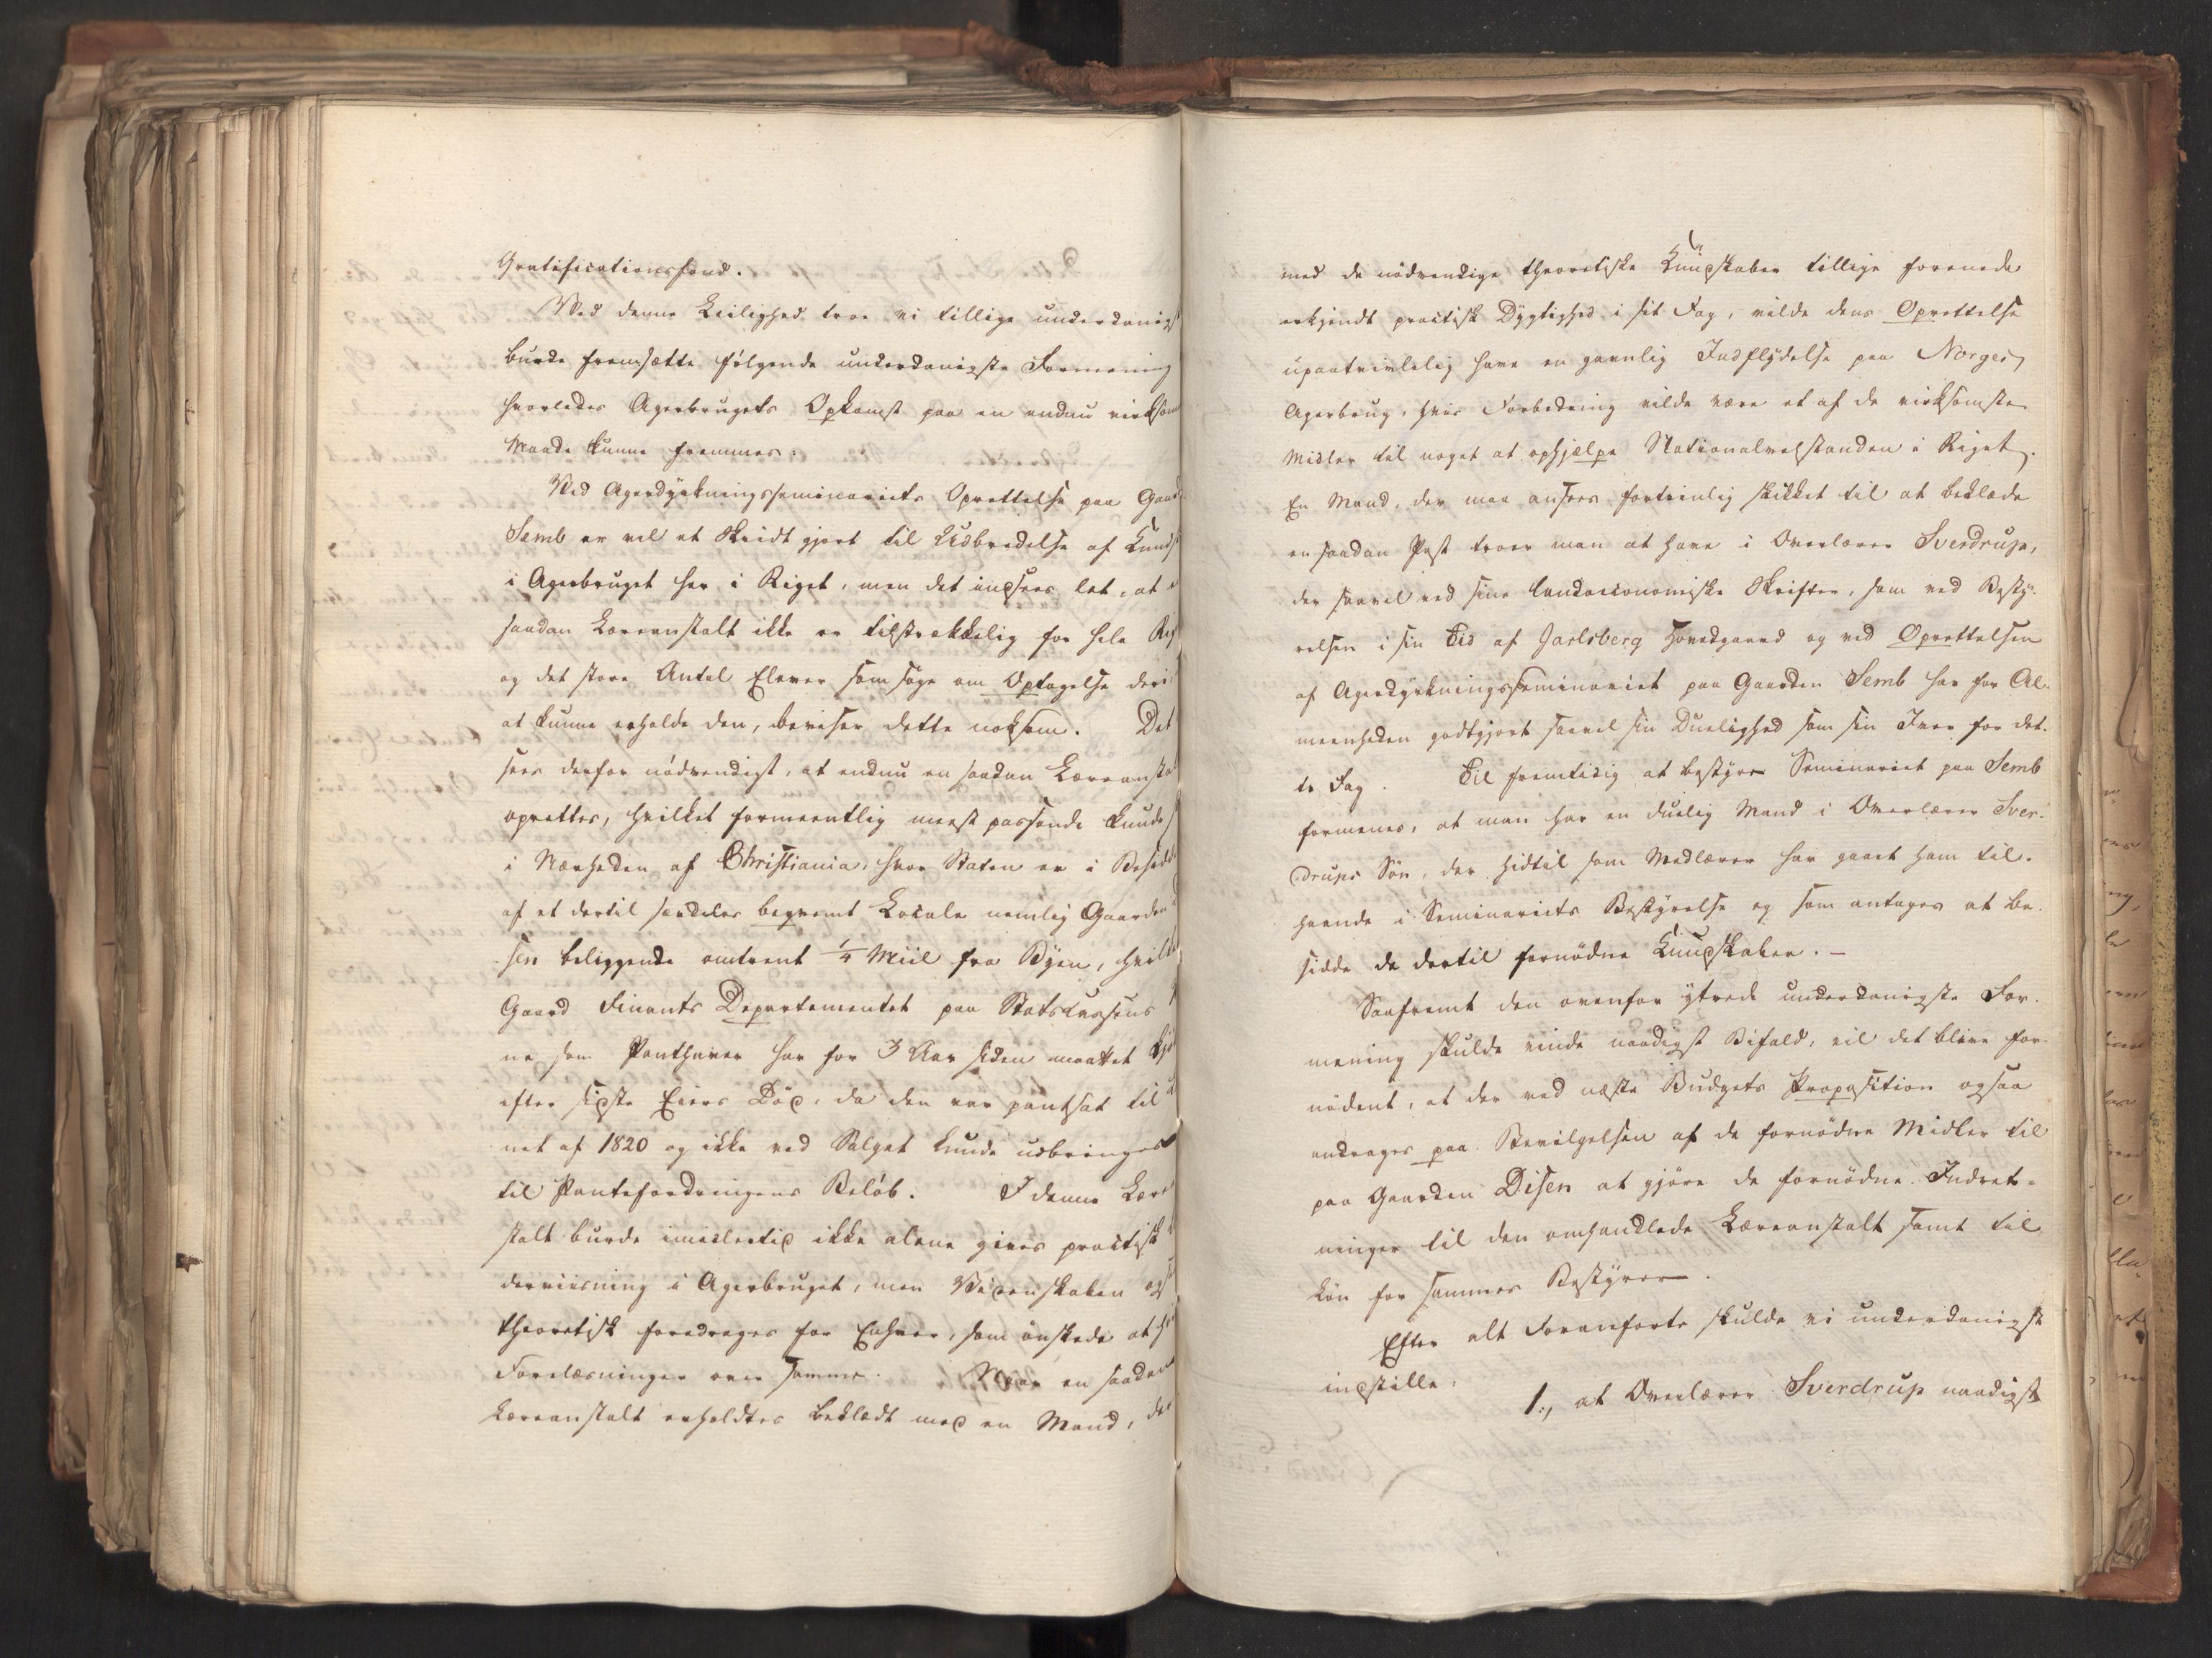 Gratificationsfond.
Ved denne Leilighed troe vi tillige underdanigst
burde fremsætte følgende underdanigste Formening
hvorledes Agerbrugets Opkomst paa en endnu virksom
Maade kunne fremmes:
Ved Agerdyrkningsseminariets Oprettelse paa Gaard
Semb er vel et Skridt gjort til Udbredelse af Kundsk
i Agerbruget her i Riget, men det indsees let, at e
saadan Læreanstalt ikke er tilstrækkelig for hele Rig
og det store Antal Elever som søge om Optagelse deri
at kunne erholde den, beviser dette noksom. Det
sees derfor nødvendigt, at endnu en saadan Læreanstal
oprettes, hvilket formeentlig meest passende kunde s
i Nærheden af Christiania, hvor Staten er i Besidde
af et dertil særdeles beqvemt Locale nemlig Gaarden
sen beliggende omtrent 1/4 Miil fra Byen, hvilke
Gaard Finants Departementet paa Statskassens
ne som Panthaver har for 3 Aar siden maattet kjø
efter sidste Eiers Død, da den var pantsat til
net af 1820 og ikke ved Salget kunde udbringes
til Pantefordringens Beløb. I denne Lære
stalt burde imidlertid ikke alene gives practisk
derviisning i Agerbruget, men Videnskaben ogs
theoretisk foredrages for Enhver, som ønskede at hø
Forelæsninger over samme. Naar en saadan
Læreanstalt erholdtes beklædt med en Mand, der
med de nödvendige theoretiske Kundskaber tillige forenede
erkjendt practisk Dygtighed i sit Fag, vilde dens Oprettelse
upaatvivlelig have en gavnlig Indflydelse paa Norges
Agerbrug, hvis Forbedring vilde være et af de virksomste
Midler til noget at ophjælpe Nationalvelstanden i Riget.
En Mand, der maa ansees fortrinlig skikket til at beklæde
en saadan Post troer man at have i Overlærer Sverdrup,
der saavel ved sine landoeconomiske Skrifter, som ved Besty-
relsen i sin Tid af Jarlsberg Hovedgaard og ved Oprettelsen
af Agerdyrkningsseminariet paa Gaarden Semb har for Al-
meenheden godtgjort saavel sin Duelighed som sin Iver for det-
te Fag. Til fremtidig at bestyre Seminariet paa Semb
formenes, at man har en duelig Mand i Overlærer Sver-
drups Søn, der hidtil som Medlærer har gaaet ham til-
haande i Seminariets Bestyrelse og som antages at be-
sidde de dertil fornødne Kundskaber. -
Saafremt den ovenfor yttrede underdanigste For-
mening skulde vinde naadigst Bifald, vil det blive for-
nødent, at der ved næste Budgets Proposition ogsaa
andrages paa Bevilgelsen af de fornødne Midler til
paa Gaarden Disen at gjøre de fornødne Indret-
ninger til den omhandlede Læreanstalt samt til
Løn for sammes Bestyrer.
Efter alt Foranførte skulde vi underdanigst
indstille:
1., at Overlærer Sverdrup naadigst